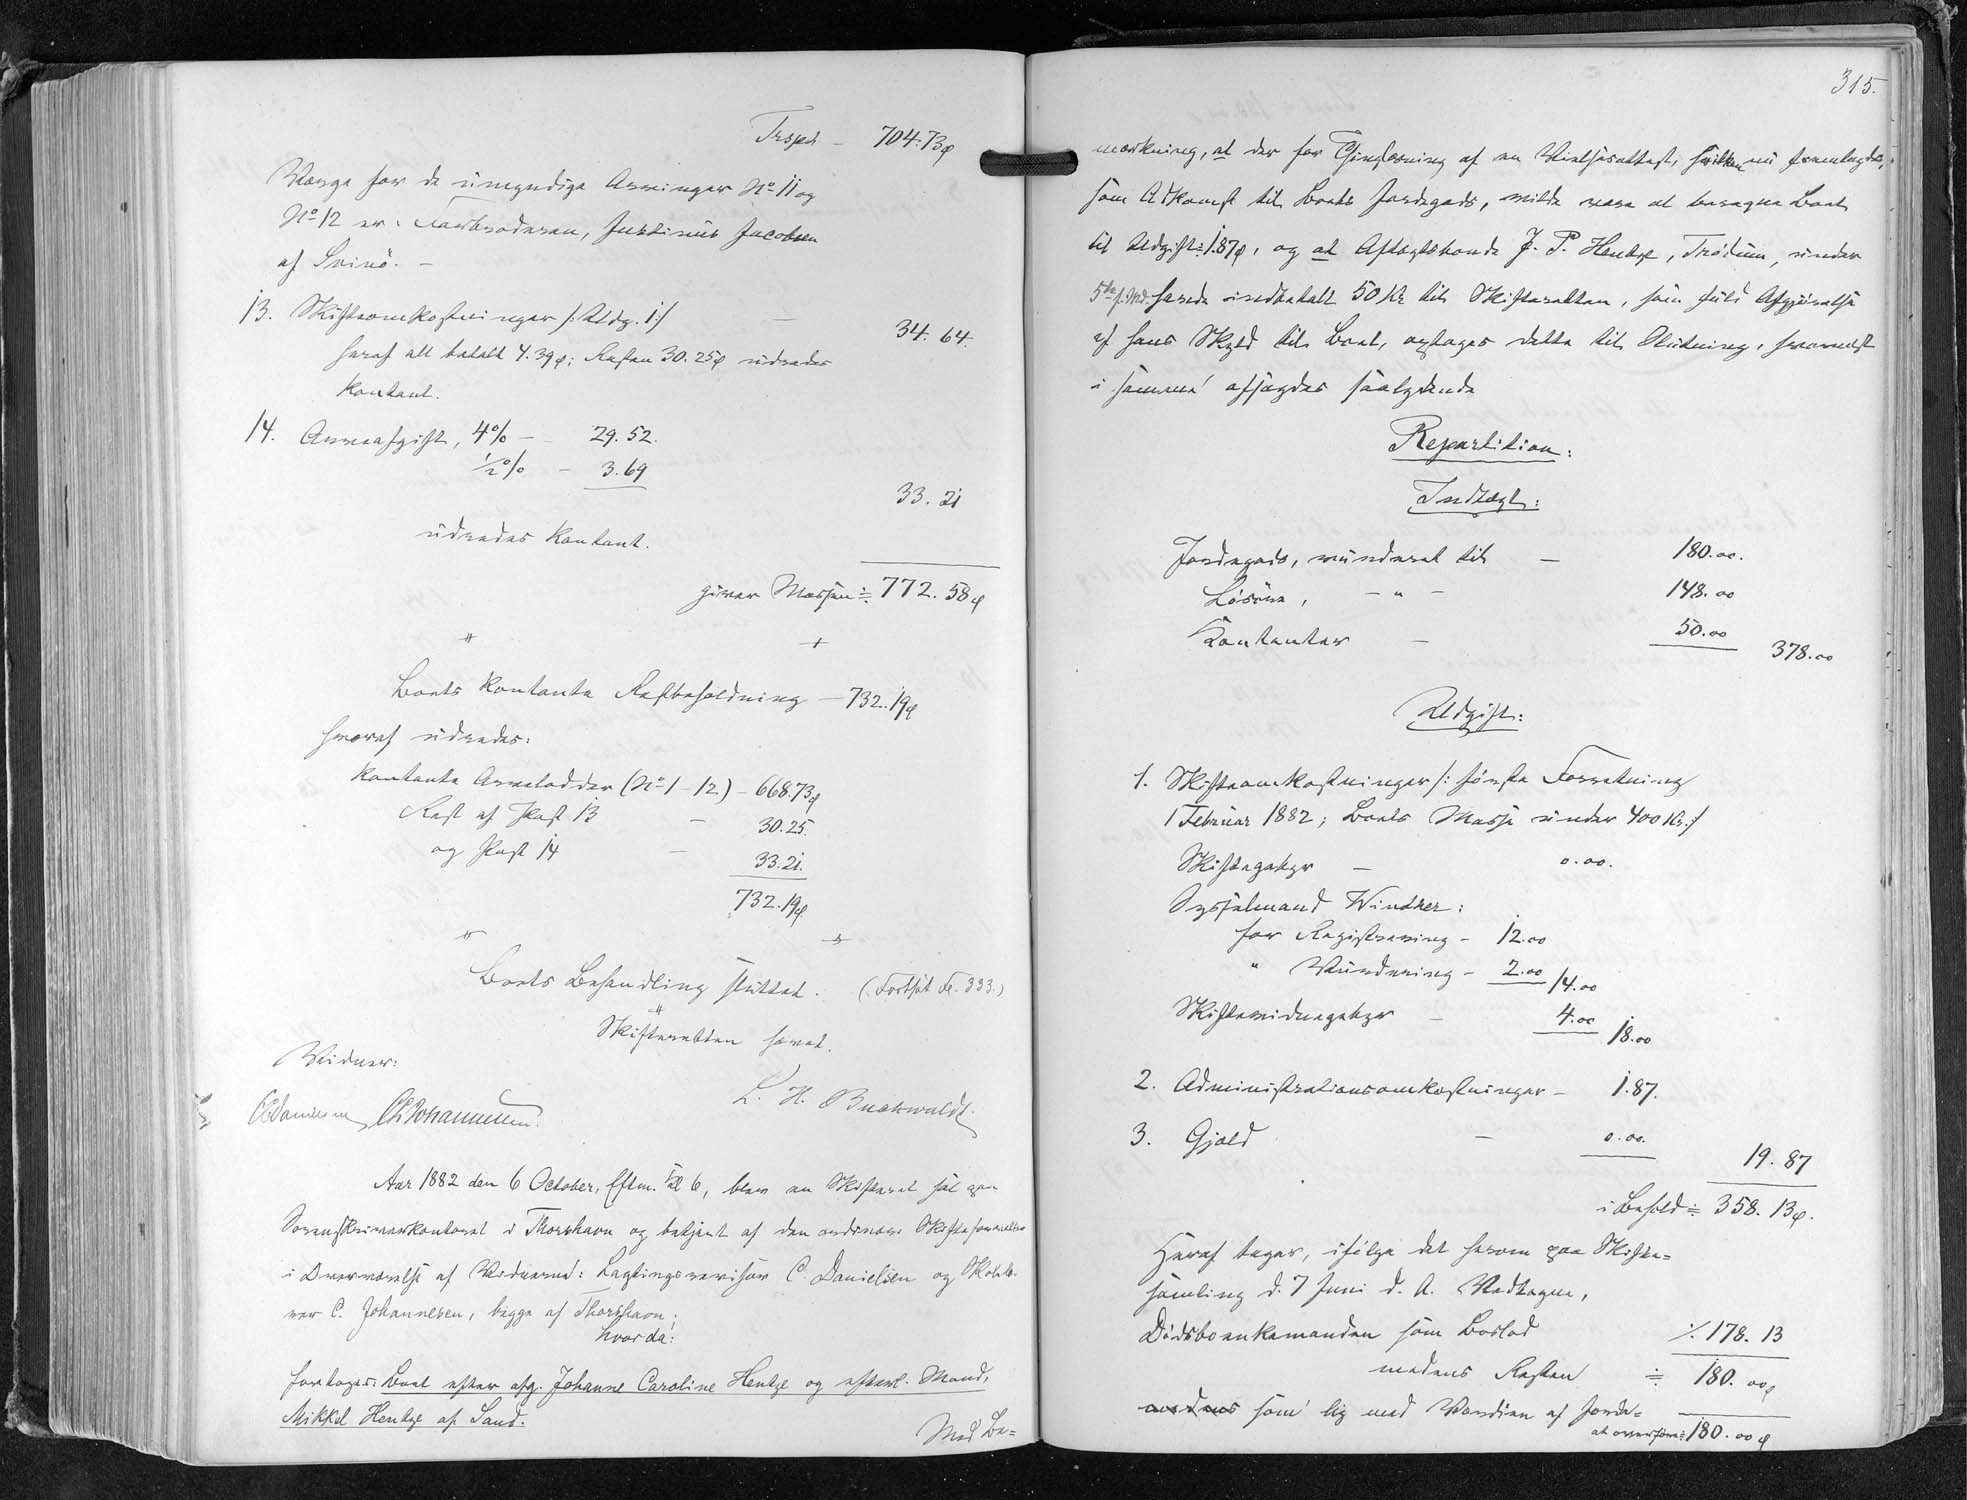 Trspt — 704.73ø
Værge for de umyndige Arvinger No 11 og
No 12 er: Farbroderen, Justinus Jacobsen
af Svinö. —
13. Skifteomkostninger /: Udg. 1 :/ — 34.64.
heraf alt betalt 4.39ø; Resten 30.25ø udredes
kontant.
14. Arveafgift, 4% — 29.52.
½% — 3.69
33.21
udredes kontant.
giver Massen = 772.58ø
Boets kontante Restbeholdning — 732.19ø
hvoraf udredes:
kontante Arvelodder (No 1–12) — 668.73ø
Rest af Post 13 — 30.25.
og Post 14 — 33.21.
732.19ø
Boets Behandling sluttet. (Fortsat Fol. 333.)
Skifteretten hævet.
Vidner:
L. H. Buchwaldt.
CDanielsen CJohannesen.
Aar 1882 den 6 October, Eftm. Kl 6, blev en Skifteret sat paa
Sorenskriverkontoret i Thorshavn og betjent af den ordinære Skifteforvalter
i Overværelse af Vidnerne: Lagtingsrevisor C. Danielsen og Skole-
C. Johannesen, begge af Thorshavn;
hvorda:
foretoges: Boet efter afg. Johanne Caroline Hentze og efterl. Mand,
Mikkel Hentze af Sand.
Med Be=
315.
mærkning, at der for Thinglæsning af en Vielsesattest, hvilken nu fremlagdes,
som Adkomst til Boets Jordegods, vilde være at beregne Boet
til Udgift: 1.87ø, og at Aftægtsbonde J. P. Hentze, Tródum, under
5te f. Md. havde indbetalt 50 Kr til Skifteretten, som fuld Afgjörelse
af hans Skyld til Boet, optoges dette til Slutning, hvornæst
i samme afsagdes saalydende
Repartition:
Indtægt:
Jordegods, vurderet til — 180.00.
Lösöre, — " — 148.00
Kontanter — 50.00 378.00
Udgift:
1. Skifteomkostninger /: förste Forretning
1 Februar 1882; Boets Masse under 400 Kr. :/
Skiftegebyr — 0.00.
Sysselmand Winther:
for Registrering — 12.00
" Vurdering — 2.00 14.00
Skiftevidnegebyr — 4.00 18.00
2. Administrationsomkostninger — 1.87.
3. Gjæld — 0.00.
19.87
i Behold = 358.13ø.
Heraf tager, ifölge det herom paa Skifte=
samling d. 7 Juni d. A. Vedtagne,
Dödsboenkemanden som Boslod ./. 178.13
medens Resten = 180.00ø
som er lig med Værdien af Jorde=
at overföre: 180.00ø